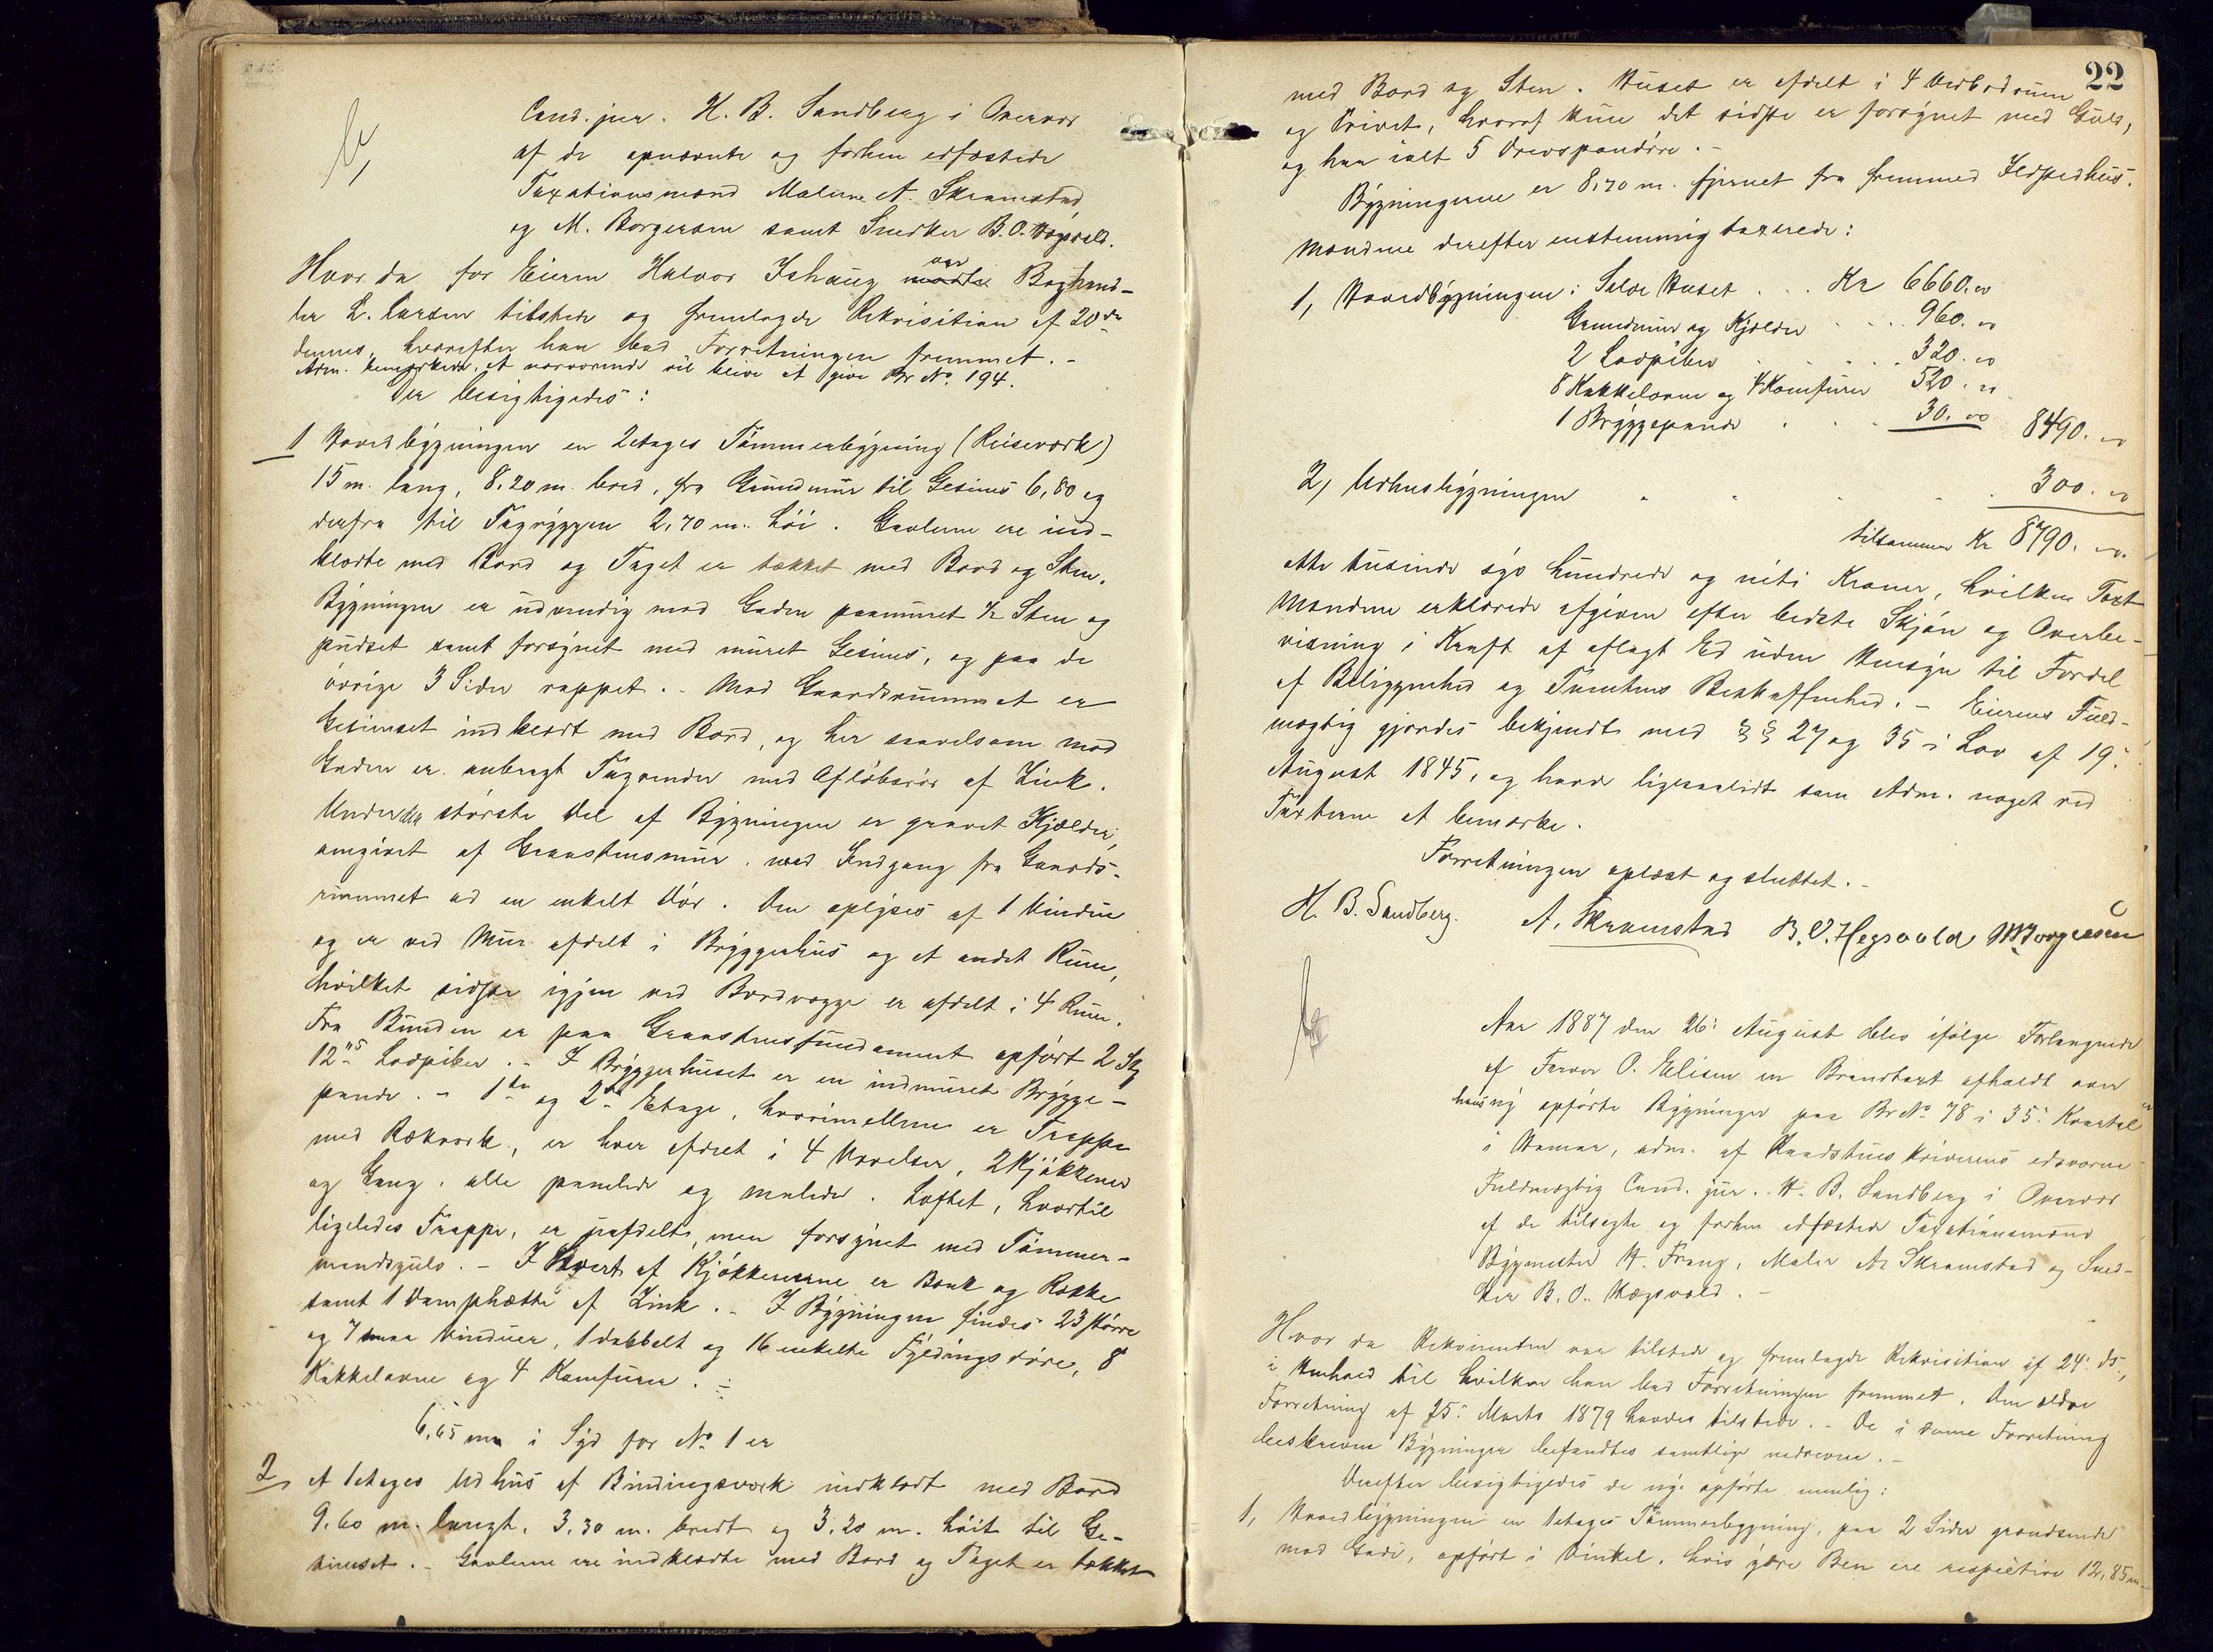 Cand. jur. H. B. Sandberg i Overvær
af de opnævnte og forhen edfæstede
Taxationsmænd Malerne A. Skramstad
og M. Borgersen samt Snedker B. O. Hægsvold.
Hvor da for Eieren Halvor Ishaug mødte var Boghand-
ler L. Larsen tilstede og fremlagde Rekvisition af 20de
dennes, hvorefter han bad Forretningen fremmet. -
Adm. bemærkede, at nærværende vil blive at give Br No. 194.
Der besigtigedes:
1 Hovedbygningen en 2etages Tømmerbygning (Reisværk)
15 m. lang, 8,20 m. bred, fra Grundmur til Gesims 6,80 og
derfra til Tagryggen 2,70 m. høi. Gavlerne ere ind-
klædte med Bord og Taget er tækket med Bord og Sten.
Bygningen er udvendig mod Gaden paamuret ½ Sten og
pudset samt forsynet med muret Gesims, og paa de
øvrige 3 Sider rappet. - Mod Gaardsrummet er
Gesimset indklædt med Bord, og her saavelsom mod
Gaden er anbragt Tagrender med Afløbsrør af Zink.
Under den største Del af Bygningen er gravet Kjælder,
omgivet af Graastensmur. med Indgang fra Gaards-
rummet ad en enkelt Dør. Den oplyses af 1 Vindue
og er ved Mur afdelt i Bryggerhus og et andet Rum,
hvilket sidste igjen ved Bordvægge er afdelt i 4 Rum.
Fra Bunden er paa Graastensfundament opført 2 Stk
12"s Lodpiber. - I Bryggerhuset er en indmuret Brygge-
pande. - 1ste og 2den Etage, hvorimellem er Trappe
med Rækværk, er hver afdelt i 4 Værelser, 2 Kjøkkener
og Gang, alle panelede og malede. Loftet, hvortil
ligeledes Trappe, er uafdelt, men forsynet med Tømmer-
mandsgulv. - I hvert af Kjøkkenerne er Bænk og Række
samt 1 Damphætte af Zink. - I Bygningen findes 23 større
og 7 smaa Vinduer, 1 dobbelt og 16 enkelte Fyldingsdøre, 8
Kakkelovne og 4 Komfurer. -
6,65 m i Syd for No 1 er
2, et 1etages Udhus af Bindingsværk indklædt med Bord
9,60 m. langt, 3,30 m. bredt og 3,20 m. høit til Ge-
simset. - Gavlerne ere indklædte med Bord og Taget er tækket
22
med Bord og Sten. Huset er afdelt i 4 Vedbodrum
og Privet, hvoraf kun det sidste er forsynet med Gulv,
og har ialt 5 Drevspondøre. -
Bygningerne er 8,70 m. fjernet fra fremmed Ildstedhus.
Mændene derefter enstemmig taxerede:
1, Hovedbygningen: Selve Huset . . . Kr 6660. 00
Grundmur og Kjælder . . . . 960. 00
2 Lodpiber . . . . . 320. 00
8 Kakkelovne og 4 Komfurer 520. 00
1 Bryggepande . . . 30. 00 8490. 00
2, Udhusbygningen . . . . . 300. 00
tilsammen Kr 8790. 00.
otte tusinde syv hundrede og niti Kroner, hvilken Taxt
Mændene erklærede afgiven efter bedste Skjøn og Overbe-
visning i Kraft af aflagt Ed uden Hensyn til Fordel
af Beliggenhed og Tomtens Beskaffenhed. - Eierens Fuld-
mægtig gjordes bekjendt med §§ 27 og 35 i Lov af 19:
August 1845, og havde ligesaalidt som Adm. noget ved
Taxterne at bemærke.
Forretningen oplæst og sluttet. -
H. B. Sandberg. A. Skramstad B. O. Hegsvold M Borgersen
Aar 1887 den 26: August blev ifølge Forlangende
af Farver O. Elisen en Brandtaxt afholdt over
hans ny opførte Bygninger paa Br No. 78 i 35: Kvartal
i Hamar, adm. af Raadstueskriverens edsvorne
Fuldmægtig Cand. jur. H. B. Sandberg i Overvær
af de tilsagte og forhen edfæstede Taxationsmænd
Bygmester H. Frang, Maler A. Skramstad og Sned-
ker B. O. Hægsvold. -
Hvor da Rekvirenten var tilstede og fremlagde Rekvisition af 24: ds.,
i Henhold til hvilken han bad Forretningen fremmet. Den ældre
Forretning af 25: Marts 1879 havdes tilstede. - De i denne Forretning
beskrevne Bygninger befandtes samtlige nedrevne. -
Derefter besigtigedes de nye opførte nemlig:
1, Hovedbygningen en 1etages Tømmerbygning, paa 2 Sider grændsende
mod Gade, opført i Vinkel, hvis ydre Ben ere respective 12,85 m.